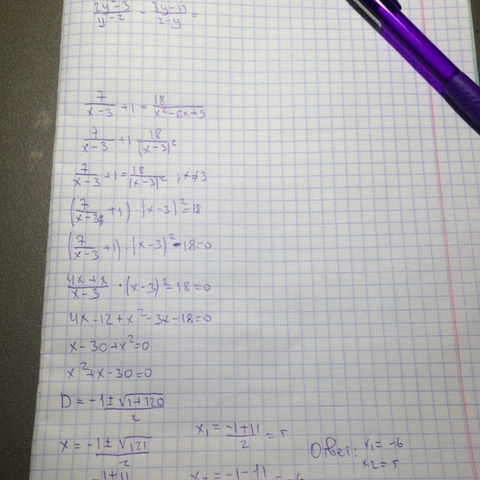 (2y-3)/(y-2) - (3y-11)/(2-y) =
7/(x-3) + 1 = 18/(x²-6x+9)
7/(x-3) + 1 18/(x-3)²
7/(x-3) + 1 = 18/(x-3)² ; x≠3
(7/(x-3) + 1) · (x-3)² = 18
(7/(x-3) + 1) · (x-3)² - 18 = 0
(4x+x)/(x-3) · (x-3)² - 18 = 0
4x-12+x²-3x-18=0
x-30+x²=0
x²+x-30=0
D = (-1±√(1+120))/2
x = (-1±√121)/2
x₁ = (-1+11)/2 = 5
Ответ: x₁ = -6
x₂ = 5
-1+11
-1-11